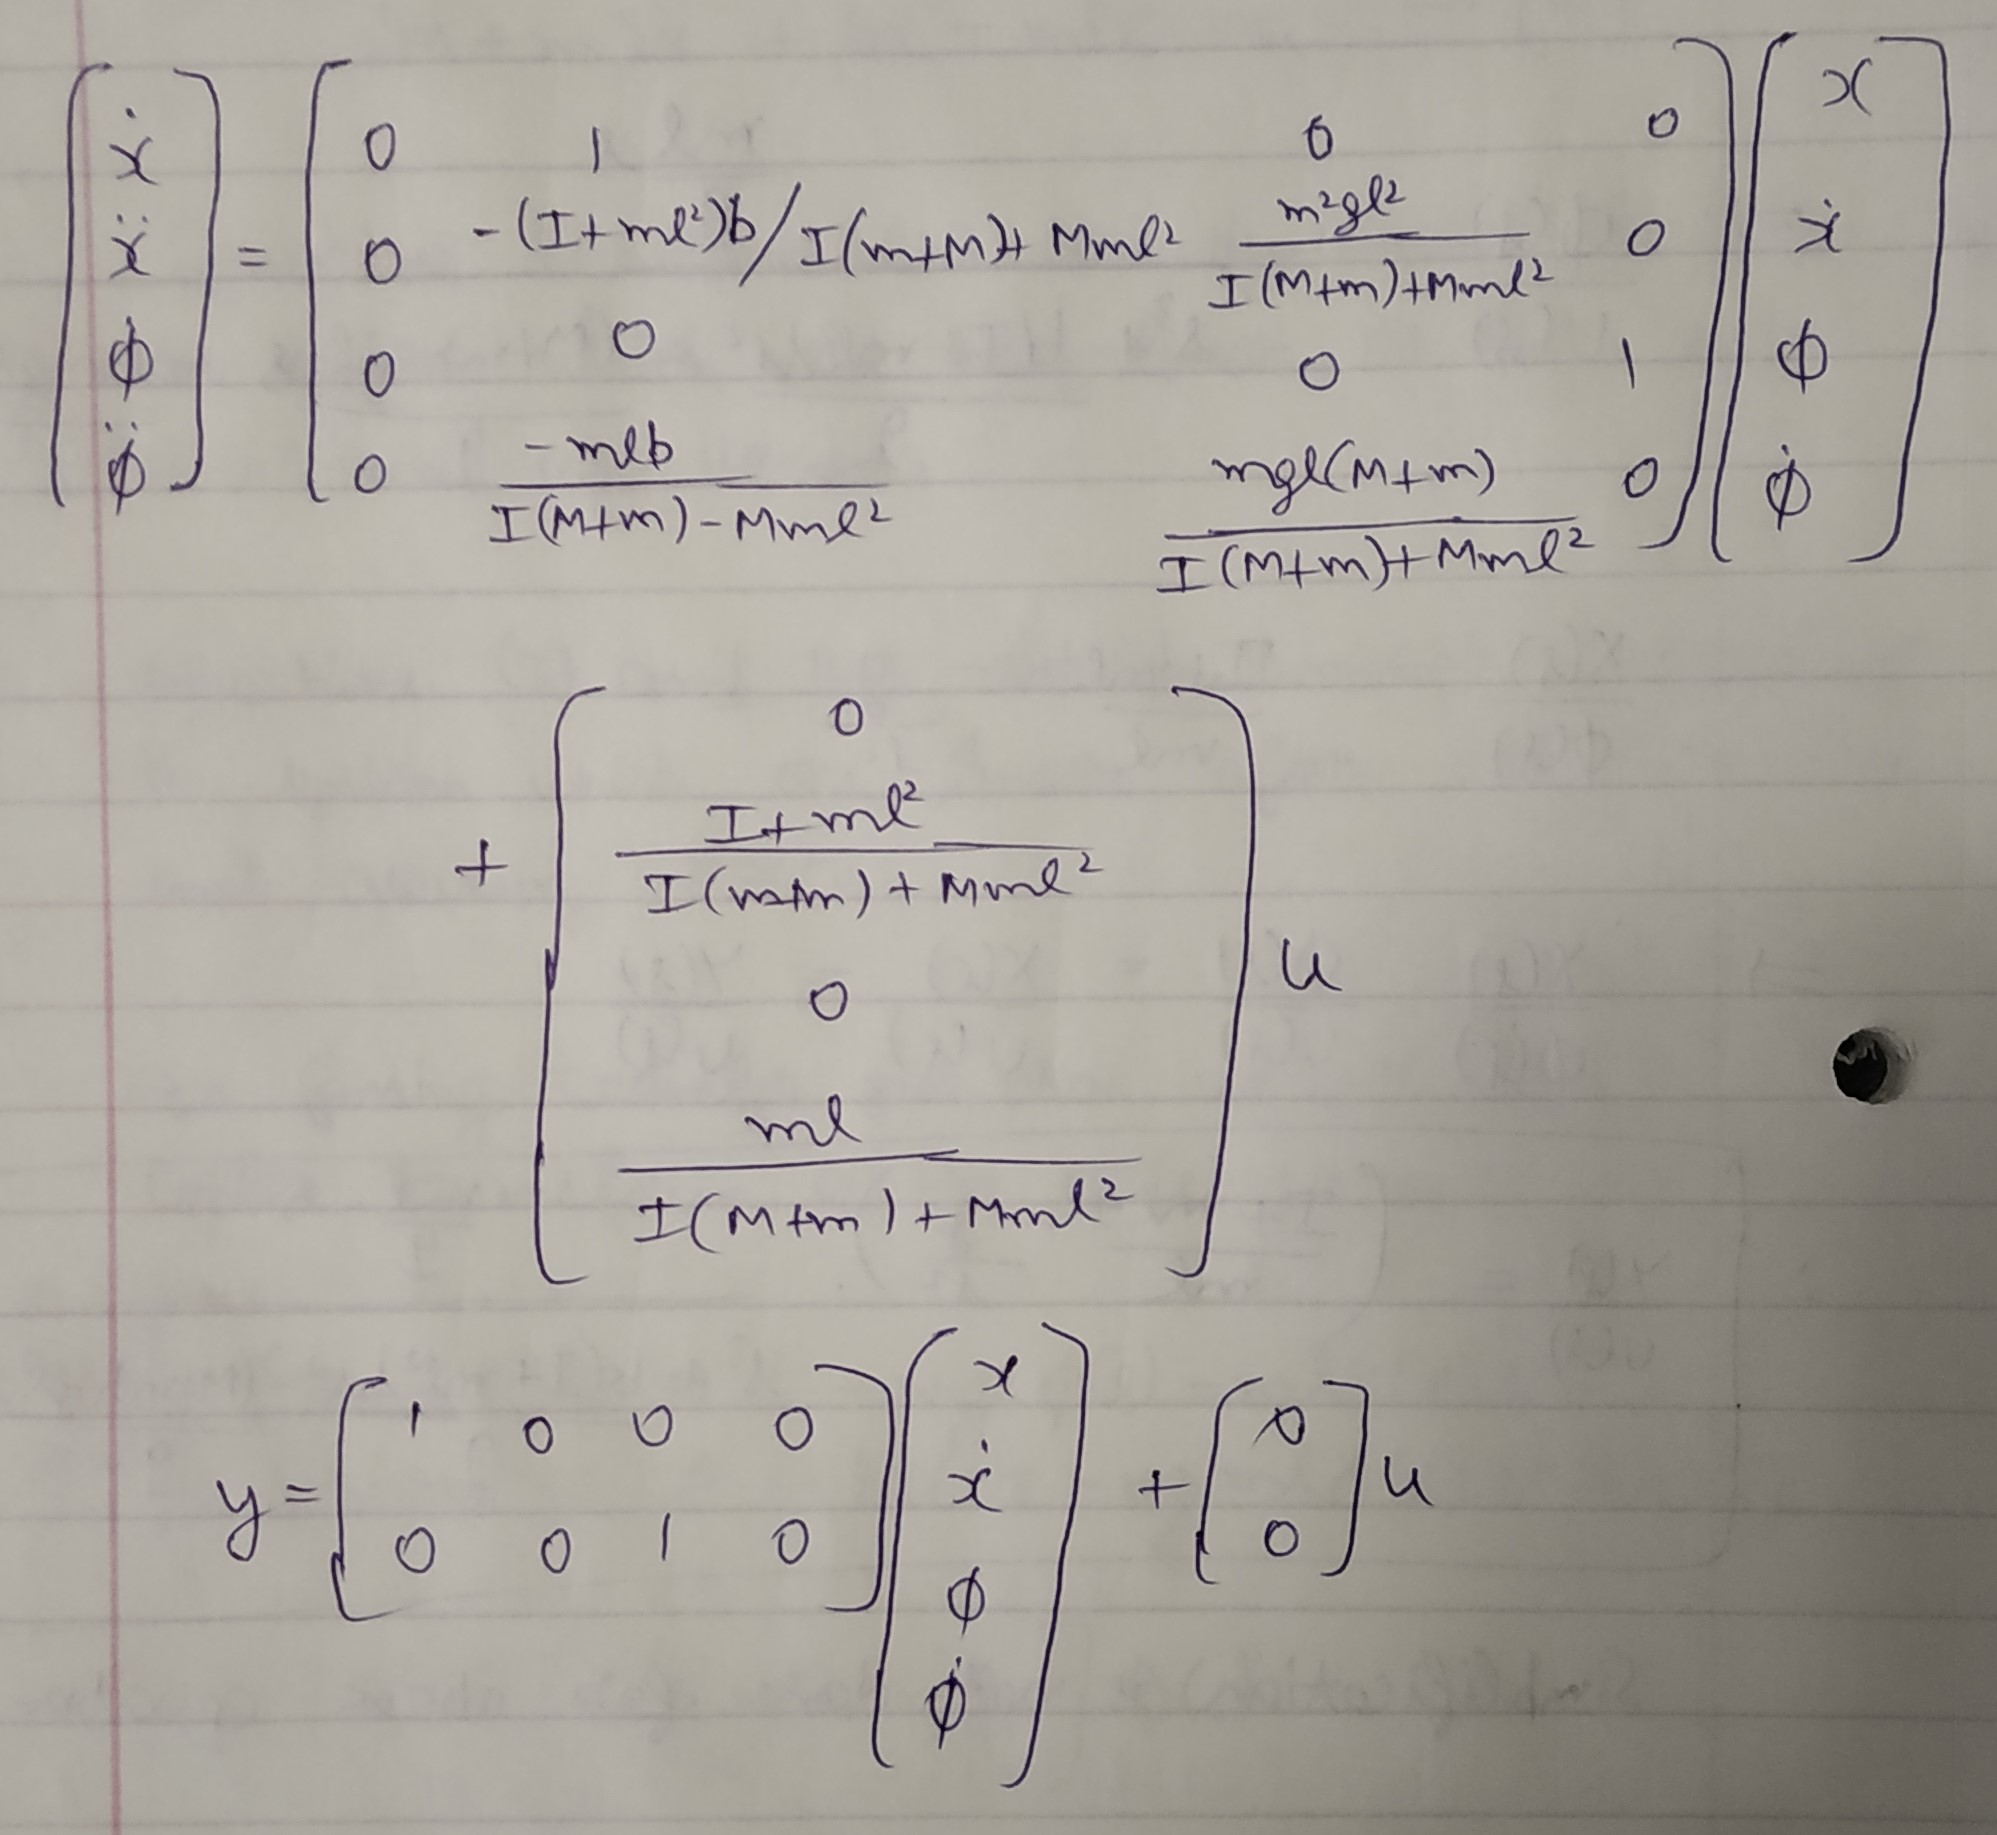 [ẋ ẍ ϕ ϕ̈] = [0 1 0 0
0 -(I+ml²)b/I(m+M)+Mml² m²gl²/I(M+m)+Mml² 0
0 0 0 1
0 -mlb/I(M+m)-Mml² mgl(M+m)/I(M+m)+Mml² 0] [x ẋ ϕ ϕ̇]
+ [0
I+ml²/I(m+m)+Mml²
0
ml/I(M+m)+Mml²] u
y = [1 0 0 0
0 0 1 0] [x ẋ ϕ ϕ̇] + [0 0] u